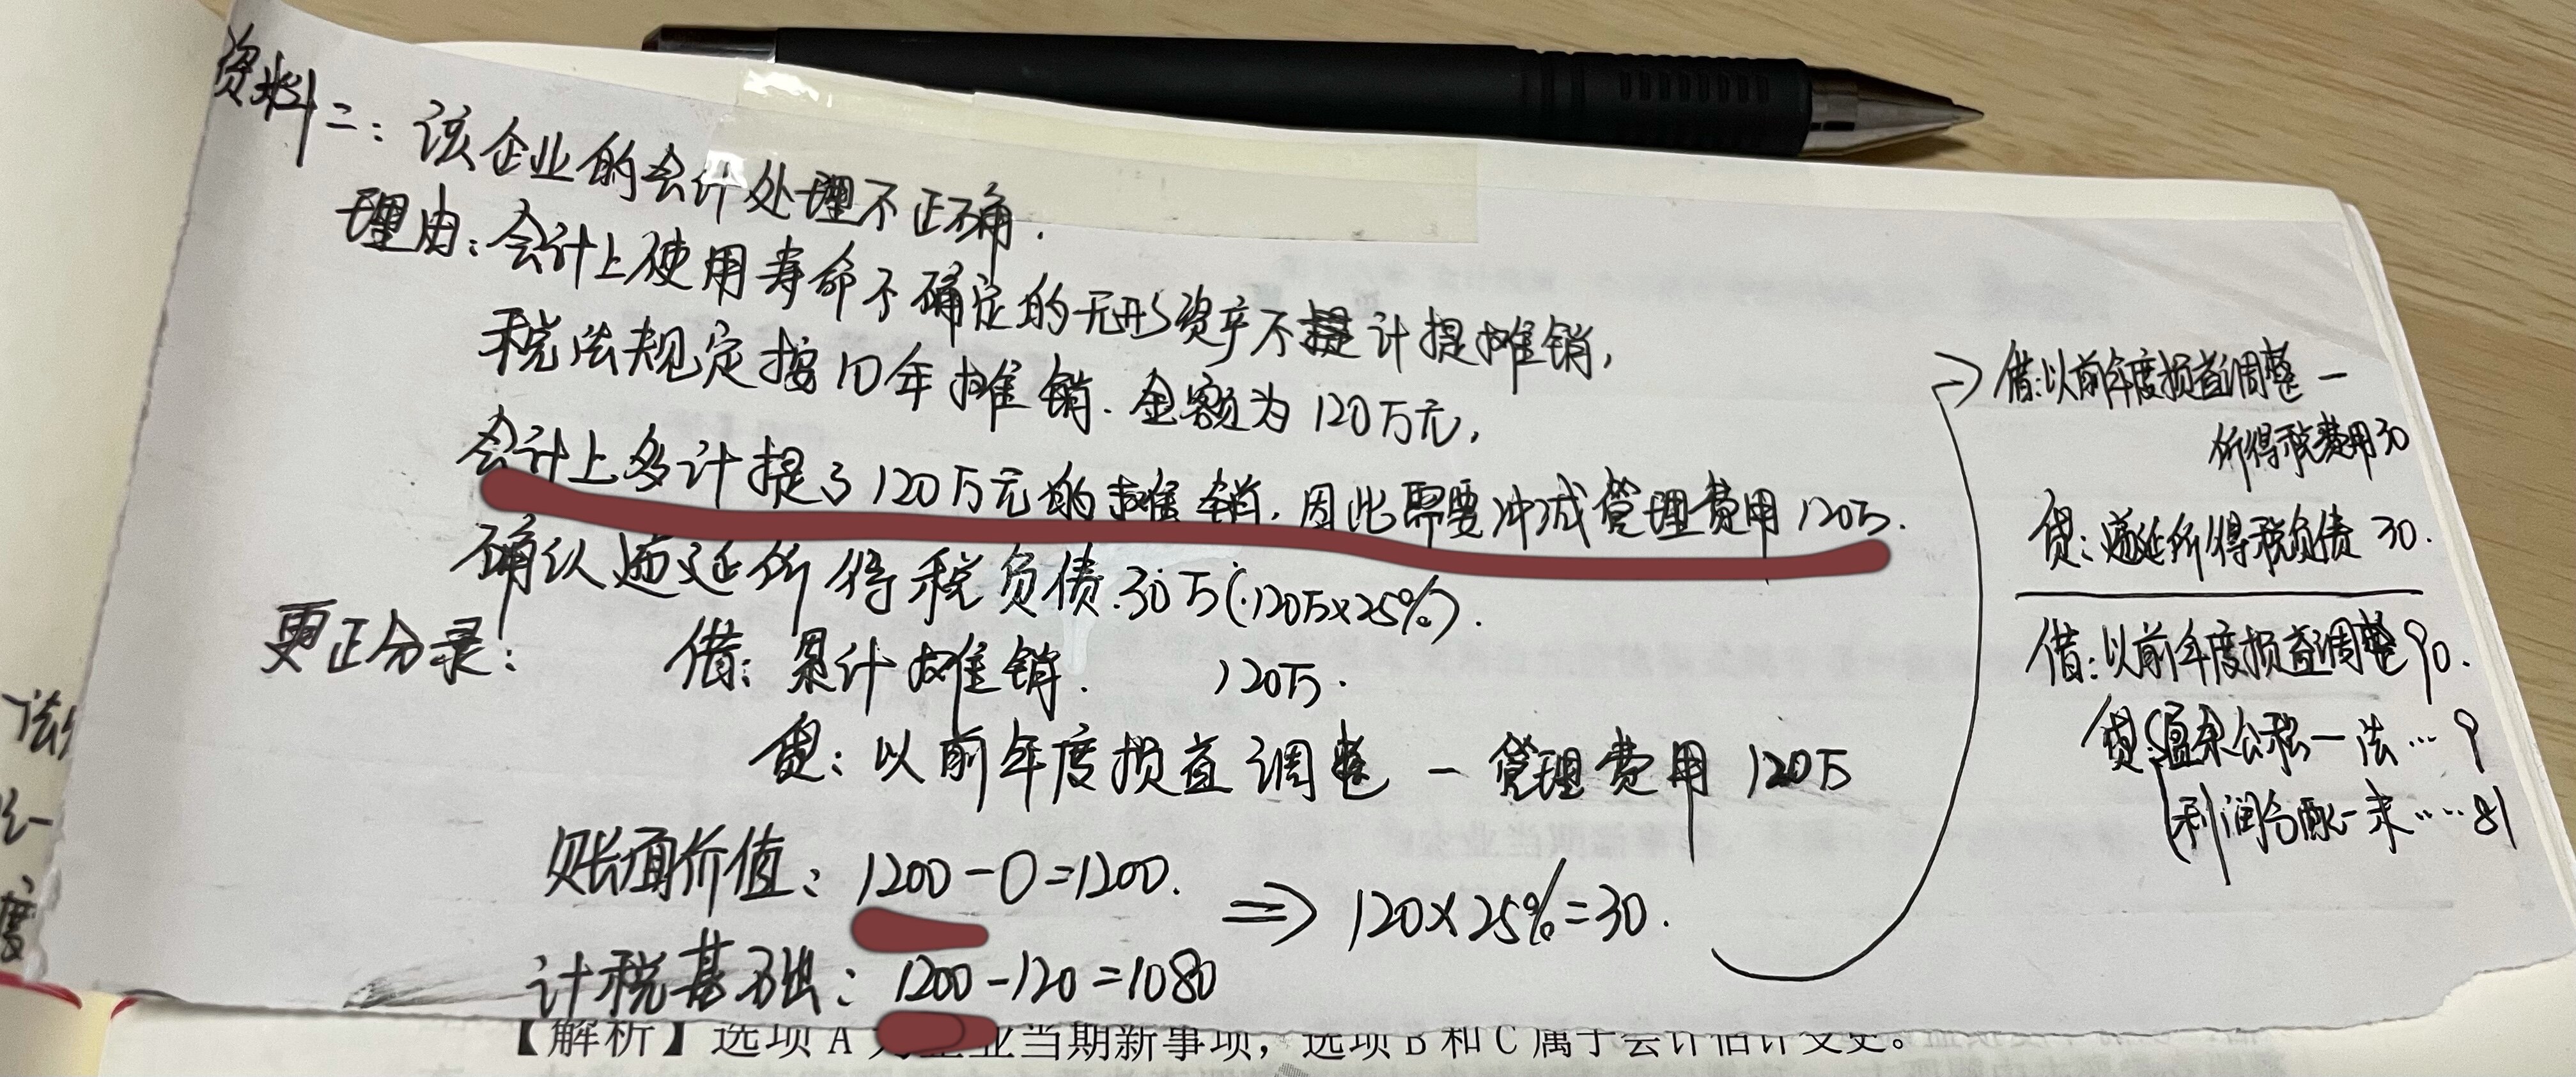 资料二：该企业的会计处理不正确.
理由：会计上使用寿命不确定的无形资产不计提摊销,
税法规定按10年摊销.金额为120万元,
会计上多计提了120万元的摊销.因此需要冲减管理费用120万.
确认递延所得税负债.30万(120万×25%).
更正分录：
借：累计摊销. 120万.
贷：以前年度损益调整－管理费用 120万
账面价值：1200－0＝1200.
计税基础：1200－120＝1080
⇒ 120×25%＝30.
借：以前年度损益调整－
所得税费用30
贷：递延所得税负债 30.
借：以前年度损益调整 90.
贷：盈余公积－法… 9
利润分配－未…… 81
【解析】选项A为企业当期新事项，选项B和C属于会计估计变更。
法
度